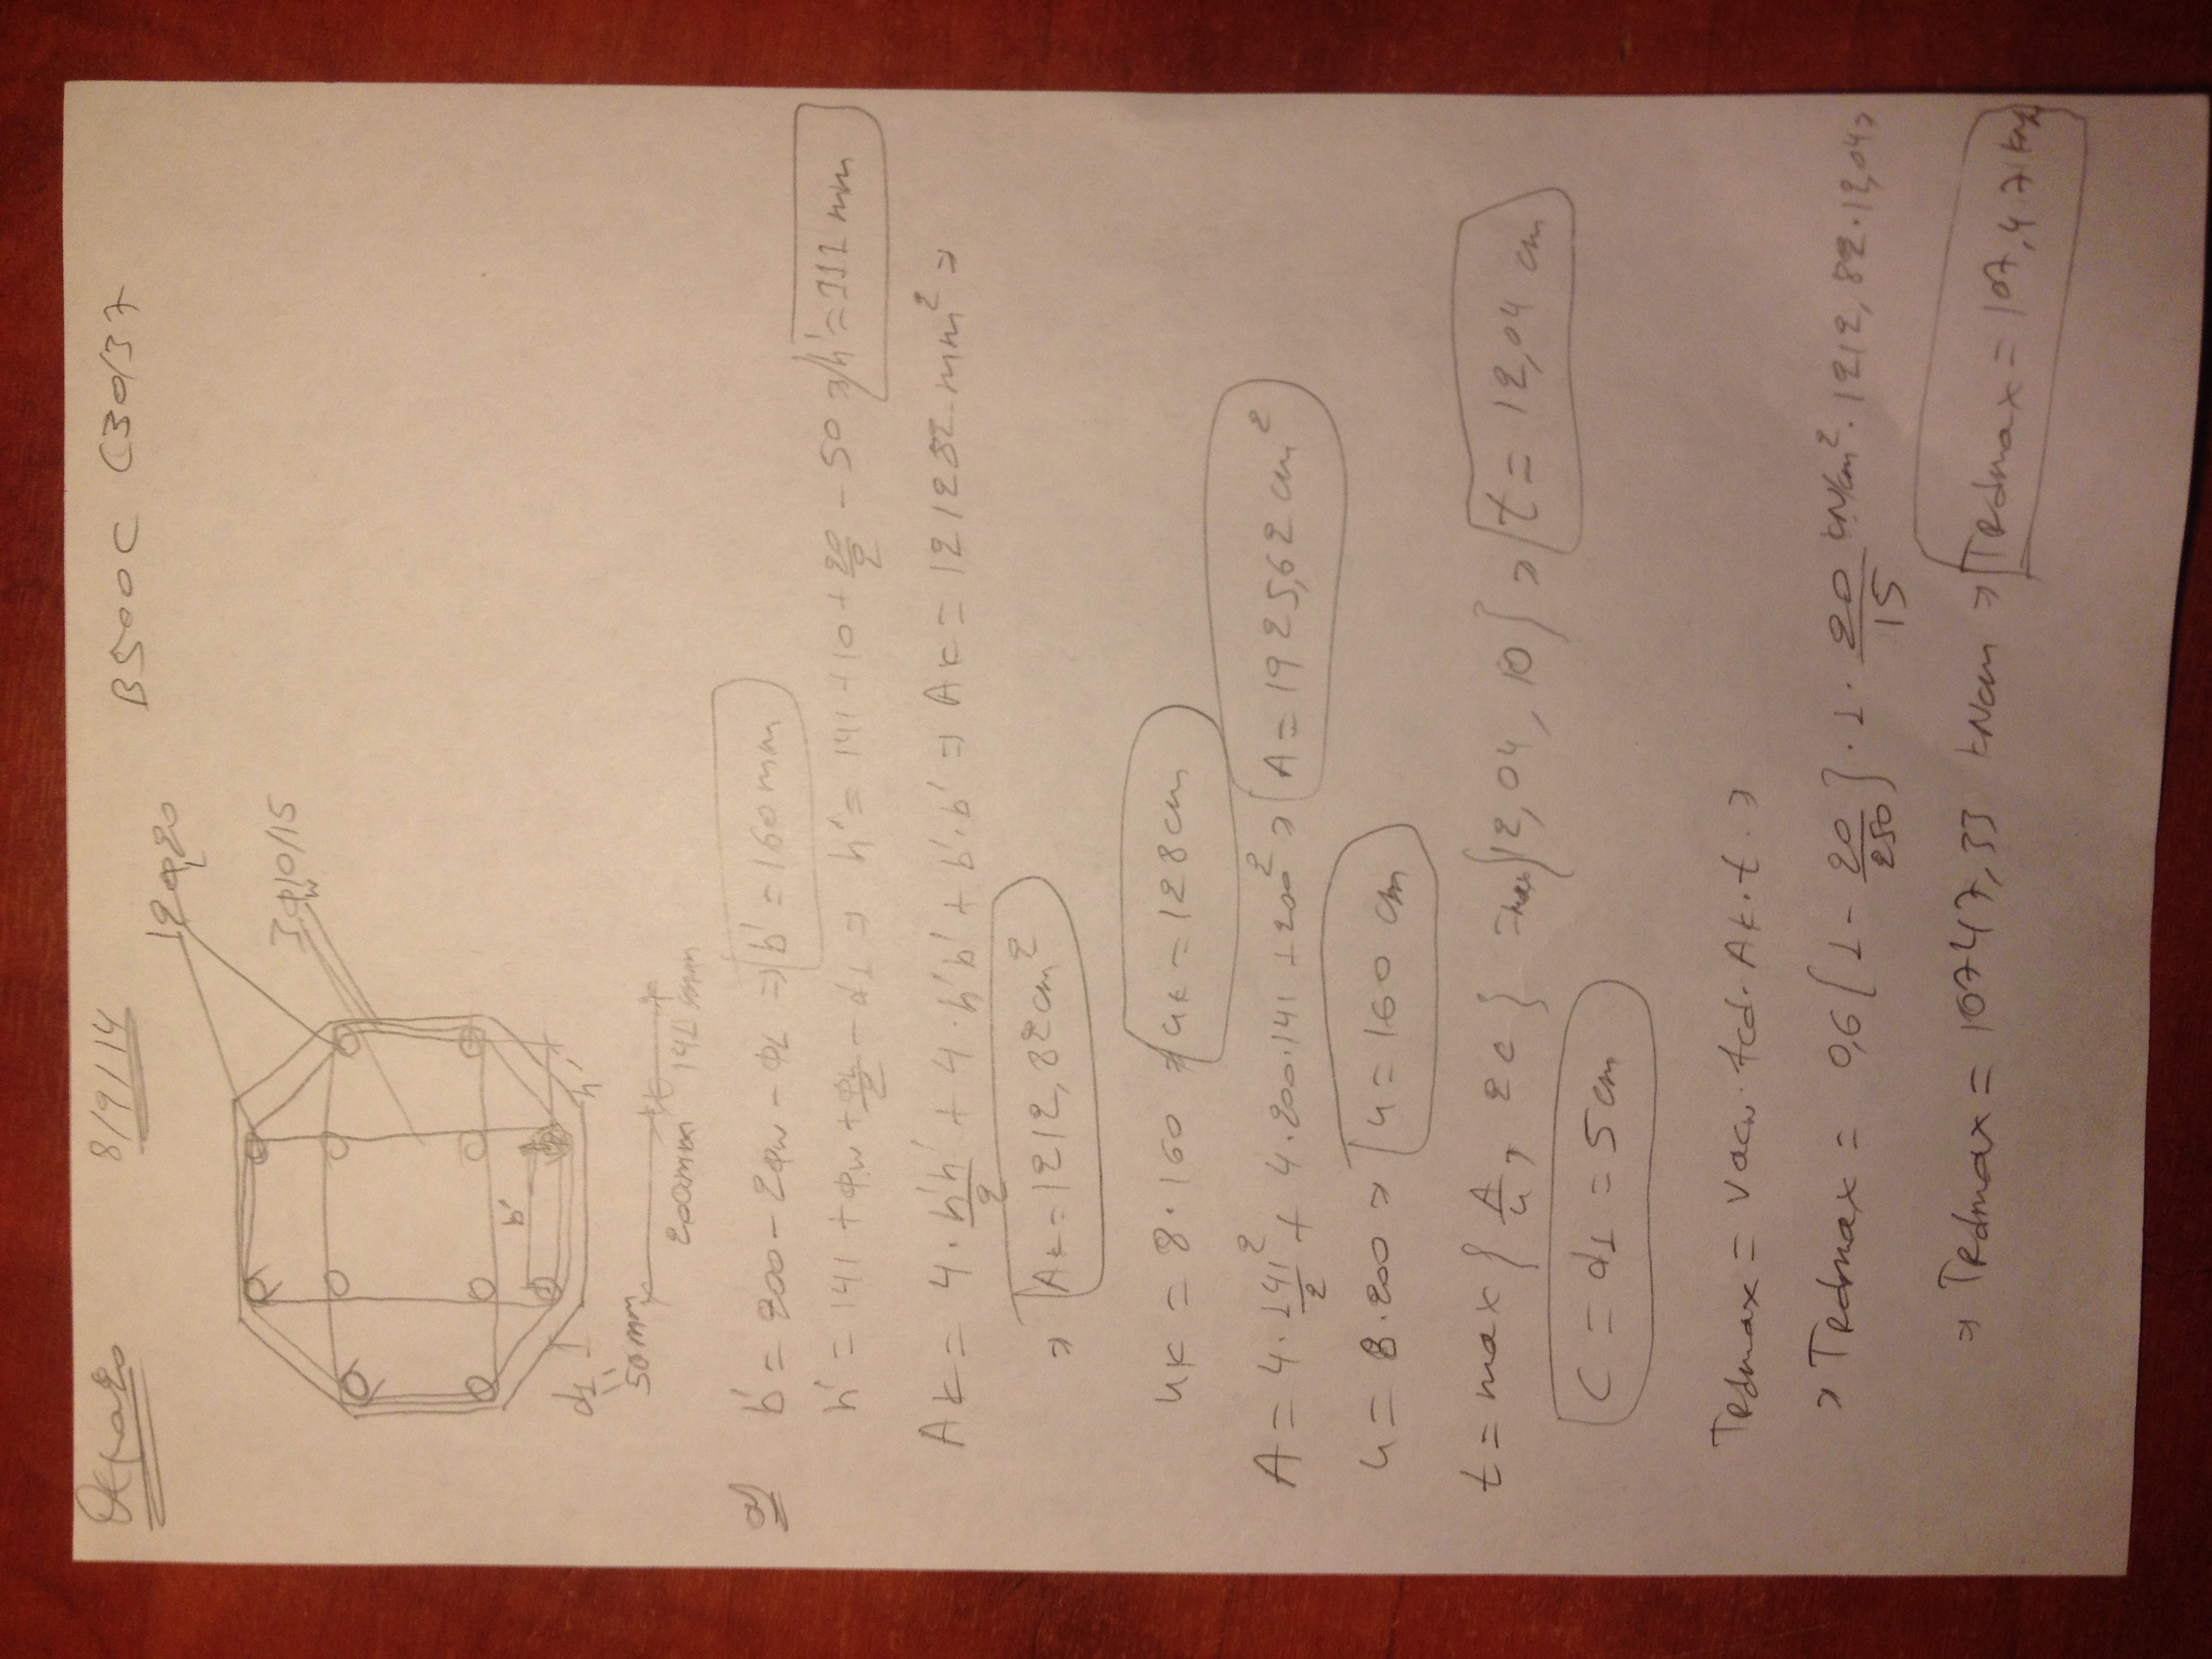 8/9/14 B500C C30/37
12φ20
3φw10/15
b'
h'
d1
50mm 200mm 141mm
a) b' = 200 - 2φw - φL ⇒ b' = 160mm
h' = 141 + φw + φL/2 - d1 ⇒ h' = 141 + 10 + 20/2 - 50 ⇒ h' = 111 mm
Ak = 4 · h'h'/2 + 4 · h'b' + b'·b' ⇒ Ak = 121282 mm² ⇒
⇒ Ak = 1212,82cm²
uk = 8·160 ⇒ uk = 128cm
A = 4 · 141²/2 + 4·200·141 + 200² ⇒ A = 1925,62 cm²
u = 8·200 ⇒ u = 160 cm
t = max { A/u, 2c } = max{12,04, 10} ⇒ t = 12,04 cm
C = d1 = 5cm
TRdmax = νacw · fcd · Ak · t · ⇒
⇒ TRdmax = 0,6 { 1 - 20/250 } · 1 · 20/15 kN/cm² · 1212,82 · 12,04 ⇒
⇒ TRdmax = 10747,33 kNcm ⇒ TRdmax = 107,47kNm